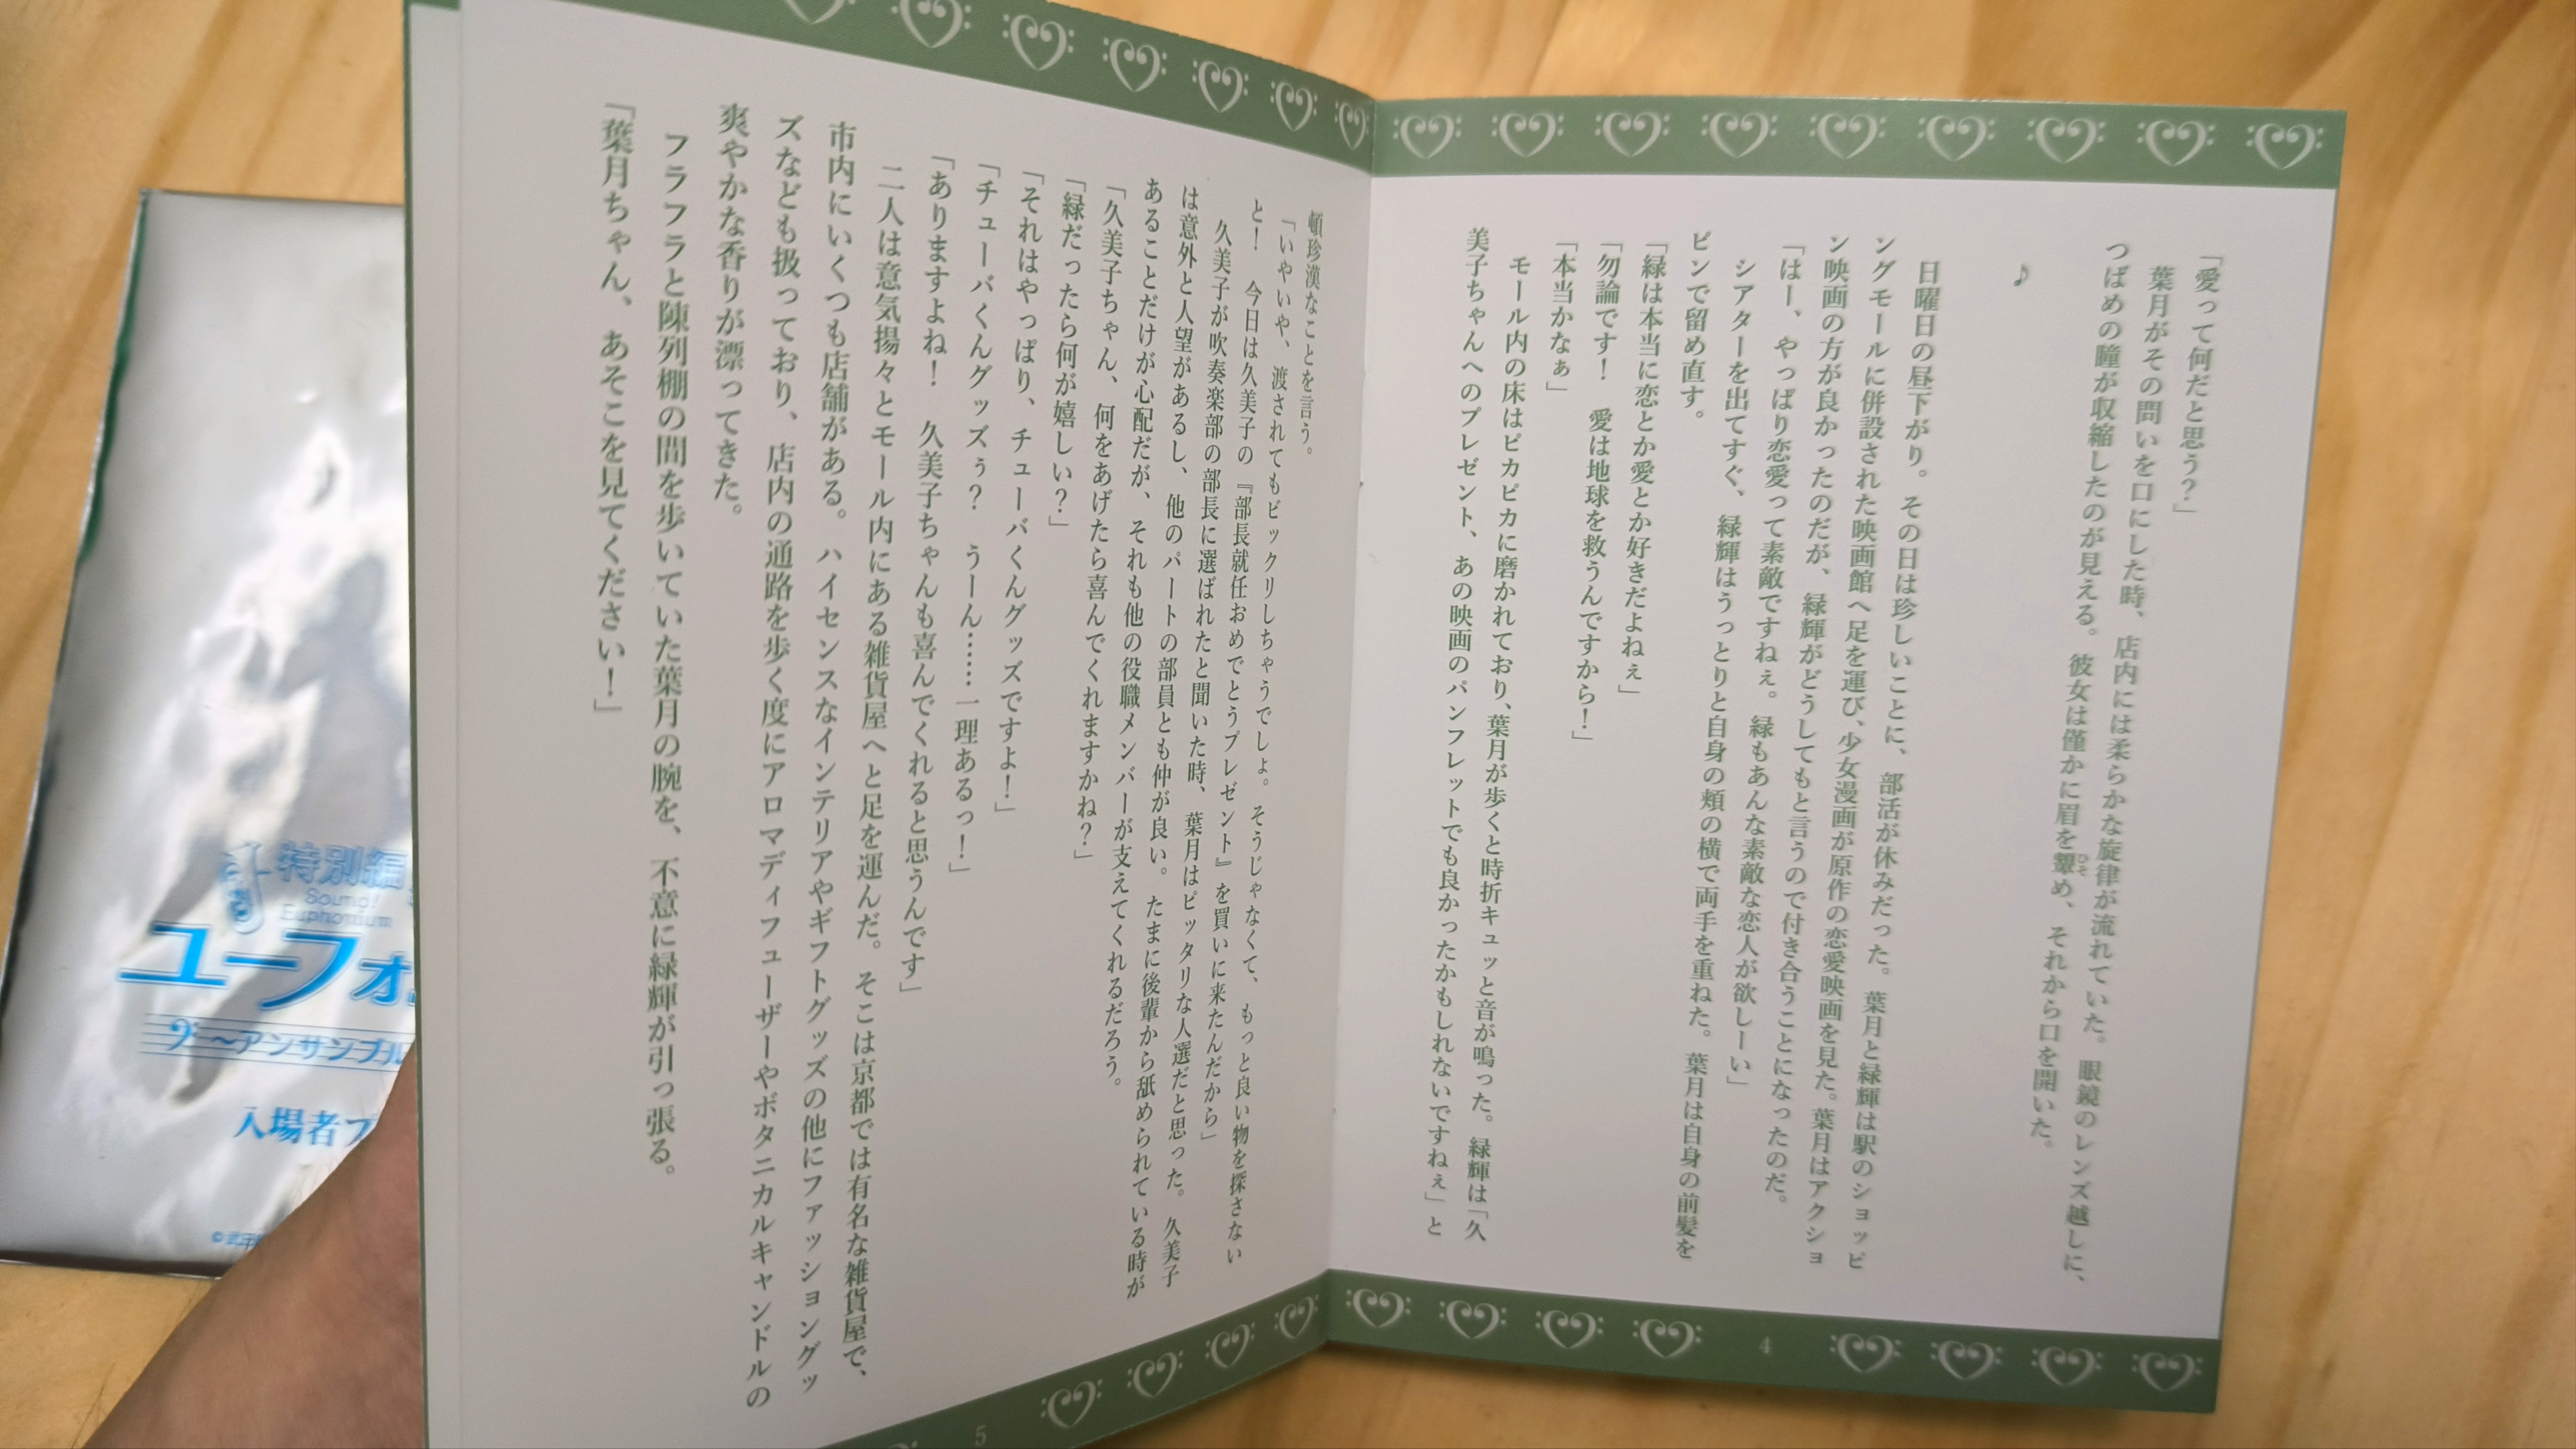 「愛って何だと思う?」
葉月がその問いを口にした時、店内には柔らかな旋律が流れていた。眼鏡のレンズ越しに、
つばめの瞳が収縮したのが見える。彼女は僅かに眉を顰め、それから口を開いた。
ひそ
♪
日曜日の昼下がり。その日は珍しいことに、部活が休みだった。葉月と緑輝は駅のショッピ
ングモールに併設された映画館へ足を運び、少女漫画が原作の恋愛映画を見た。葉月はアクショ
ン映画の方が良かったのだが、緑輝がどうしてもと言うので付き合うことになったのだ。
「はー、やっぱり恋愛って素敵ですねぇ。緑もあんな素敵な恋人が欲しーい」
シアターを出てすぐ、緑輝はうっとりと自身の頬の横で両手を重ねた。葉月は自身の前髪を
ピンで留め直す。
「緑は本当に恋とか愛とか好きだよねぇ」
「勿論です! 愛は地球を救うんですから!」
「本当かなぁ」
モール内の床はピカピカに磨かれており、葉月が歩くと時折キュッと音が鳴った。緑輝は「久
美子ちゃんへのプレゼント、あの映画のパンフレットでも良かったかもしれないですねぇ」と
4
頓珍漢なことを言う。
「いやいや、渡されてもビックリしちゃうでしょ。そうじゃなくて、もっと良い物を探さない
と! 今日は久美子の『部長就任おめでとうプレゼント』を買いに来たんだから」
久美子が吹奏楽部の部長に選ばれたと聞いた時、葉月はピッタリな人選だと思った。久美子
は意外と人望があるし、他のパートの部員とも仲が良い。たまに後輩から舐められている時が
あることだけが心配だが、それも他の役職メンバーが支えてくれるだろう。
「久美子ちゃん、何をあげたら喜んでくれますかね?」
「緑だったら何が嬉しい?」
「それはやっぱり、チューバくんグッズですよ!」
「チューバくんグッズぅ? うーん……一理あるっ!」
「ありますよね! 久美子ちゃんも喜んでくれると思うんです」
二人は意気揚々とモール内にある雑貨屋へと足を運んだ。そこは京都では有名な雑貨屋で、
市内にいくつも店舗がある。ハイセンスなインテリアやギフトグッズの他にファッショングッ
ズなども扱っており、店内の通路を歩く度にアロマディフューザーやボタニカルキャンドルの
爽やかな香りが漂ってきた。
フラフラと陳列棚の間を歩いていた葉月の腕を、不意に緑輝が引っ張る。
「葉月ちゃん、あそこを見てください!」
5
特別編
Sound!
Euphonium
ユーフォ
~アンサンブル
入場者プ